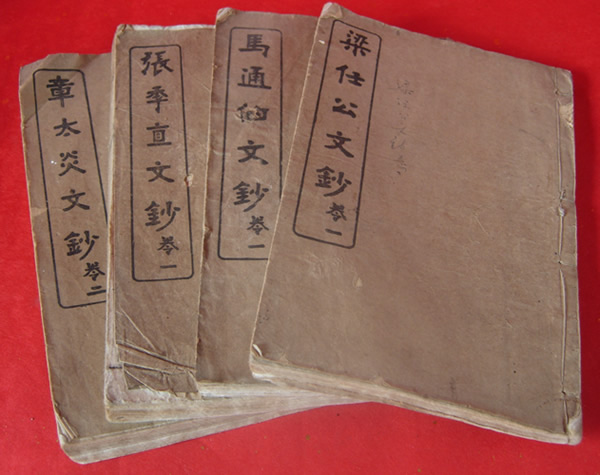 梁任公文鈔卷一
馬通伯文鈔卷一
張季直文鈔卷一
章太炎文鈔卷二